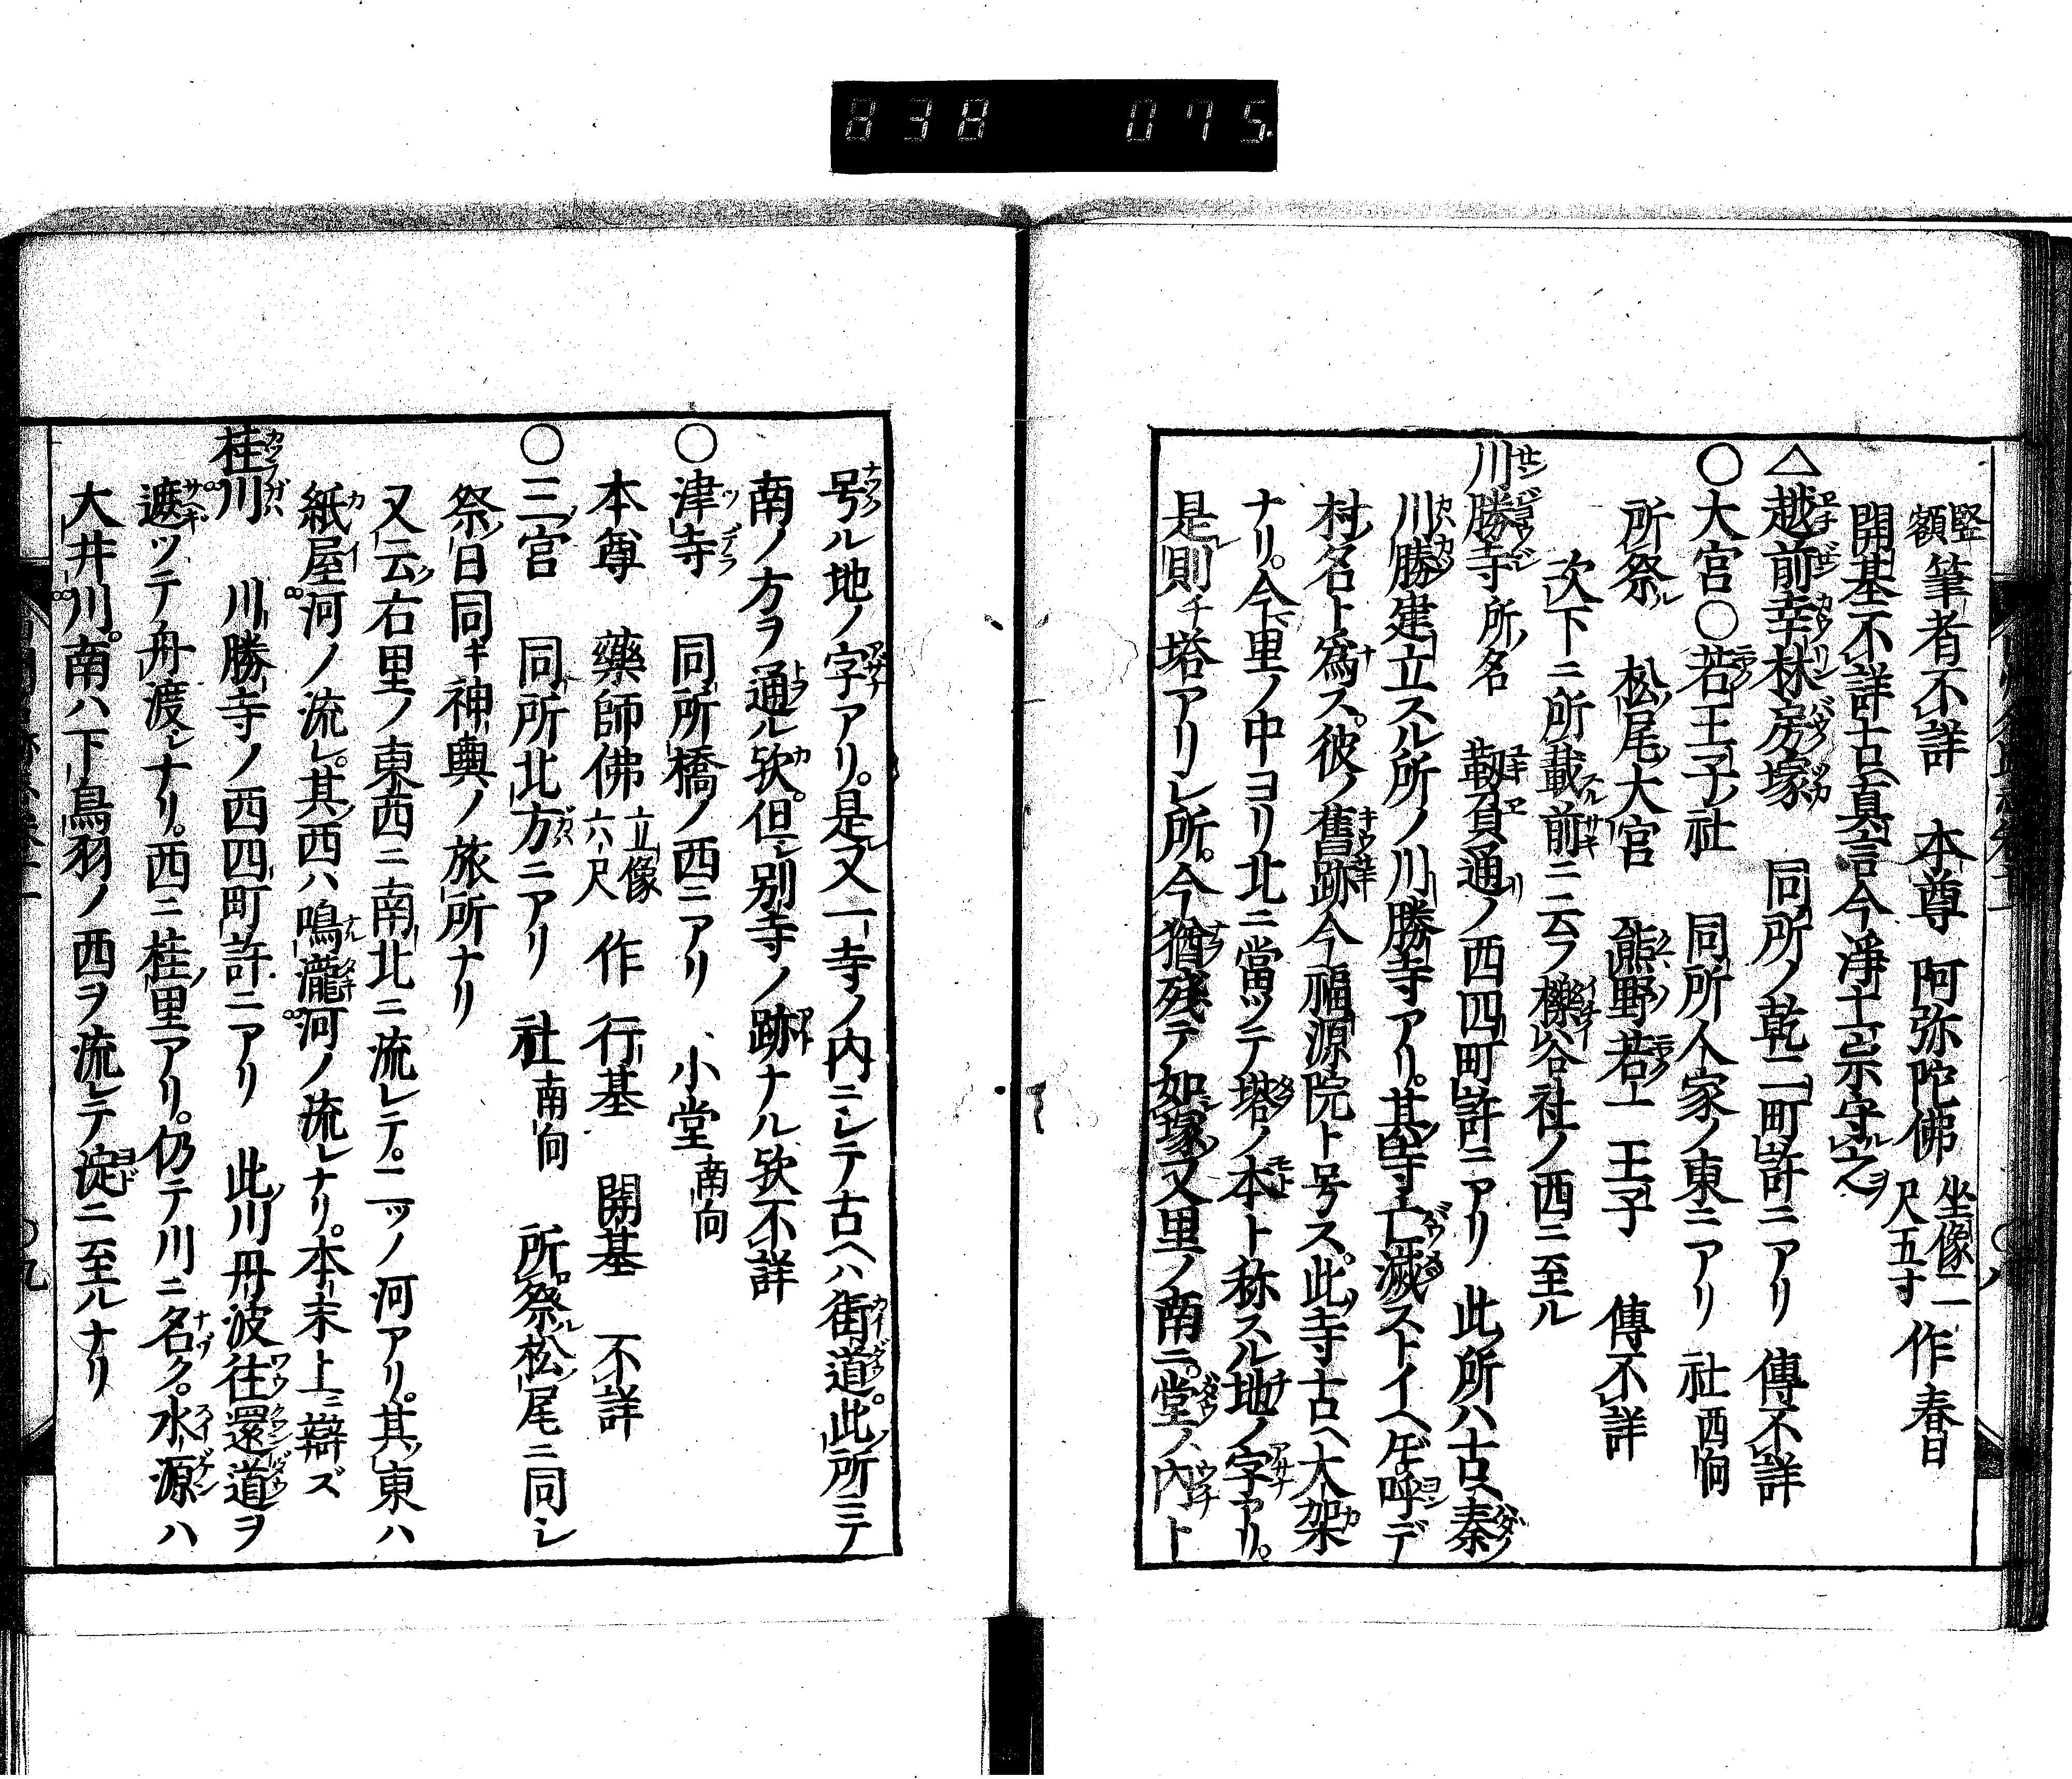 838 075
竪額 筆者不詳 本尊 阿弥陀佛 坐像二尺五寸 作 春日
開基不詳古ヘ真言今浄土宗守ル之ヲ
△越前幸林房塚 同所ノ乾二町許ニアリ 傳不詳
○大宮○若王子ノ社 同所人家ノ東ニアリ 社西向
所祭ル 松ノ尾大宮 熊野若一王子 傳不詳
次下ニ所載ル前ニ云フ櫟谷社ノ西ニ至ル
川勝寺 所ノ名 靱負通リノ西四町許ニアリ 此所ハ古ヘ秦ノ
川勝建立スル所ノ川勝寺アリ。其ノ寺ハ亡滅ストイヘ𪜈呼デ
村ノ名ト為ス。彼ノ舊跡今福源院ト号ス。此ノ寺古ヘ大架
ナリ。今ニ里ノ中ヨリ北ニ當ツテ塔ノ本ト称スル地ノ字アリ。
是レ則チ塔アリシ所。今猶残テ如塚ノ又里ノ南ニ。堂ノ内ト
号ル地ノ字アリ。是レ又一寺ノ内ニシテ古ヘハ街道。此ノ所ニテ
南ノ方ヲ通ル欤。但シ別寺ノ跡ナル欤不詳
○津寺 同所橋ノ西ニアリ 小堂南向
本尊 藥師佛 立像六尺 作 行基 開基 不詳
○三ノ宮 同所北ノ方ニアリ 社南向 所祭ル松ノ尾ニ同シ
祭ノ日同キ神輿ノ旅所ナリ
又云ク右里ノ東西ニ南北ニ流レテ。二ツノ河アリ。其ノ東ハ
紙屋河ノ流レ。其ノ西ハ鳴瀧河ノ流レナリ。本末上ニ辯ズ
桂川 川勝寺ノ西四町許ニアリ 此ノ川丹波往還道ヲ
遮ツテ舟渡シナリ。西ニ桂ノ里アリ。仍テ川ニ名ク。水源ハ
大井川。南ハ下鳥羽ノ西ヲ流レテ淀ニ至ルナリ